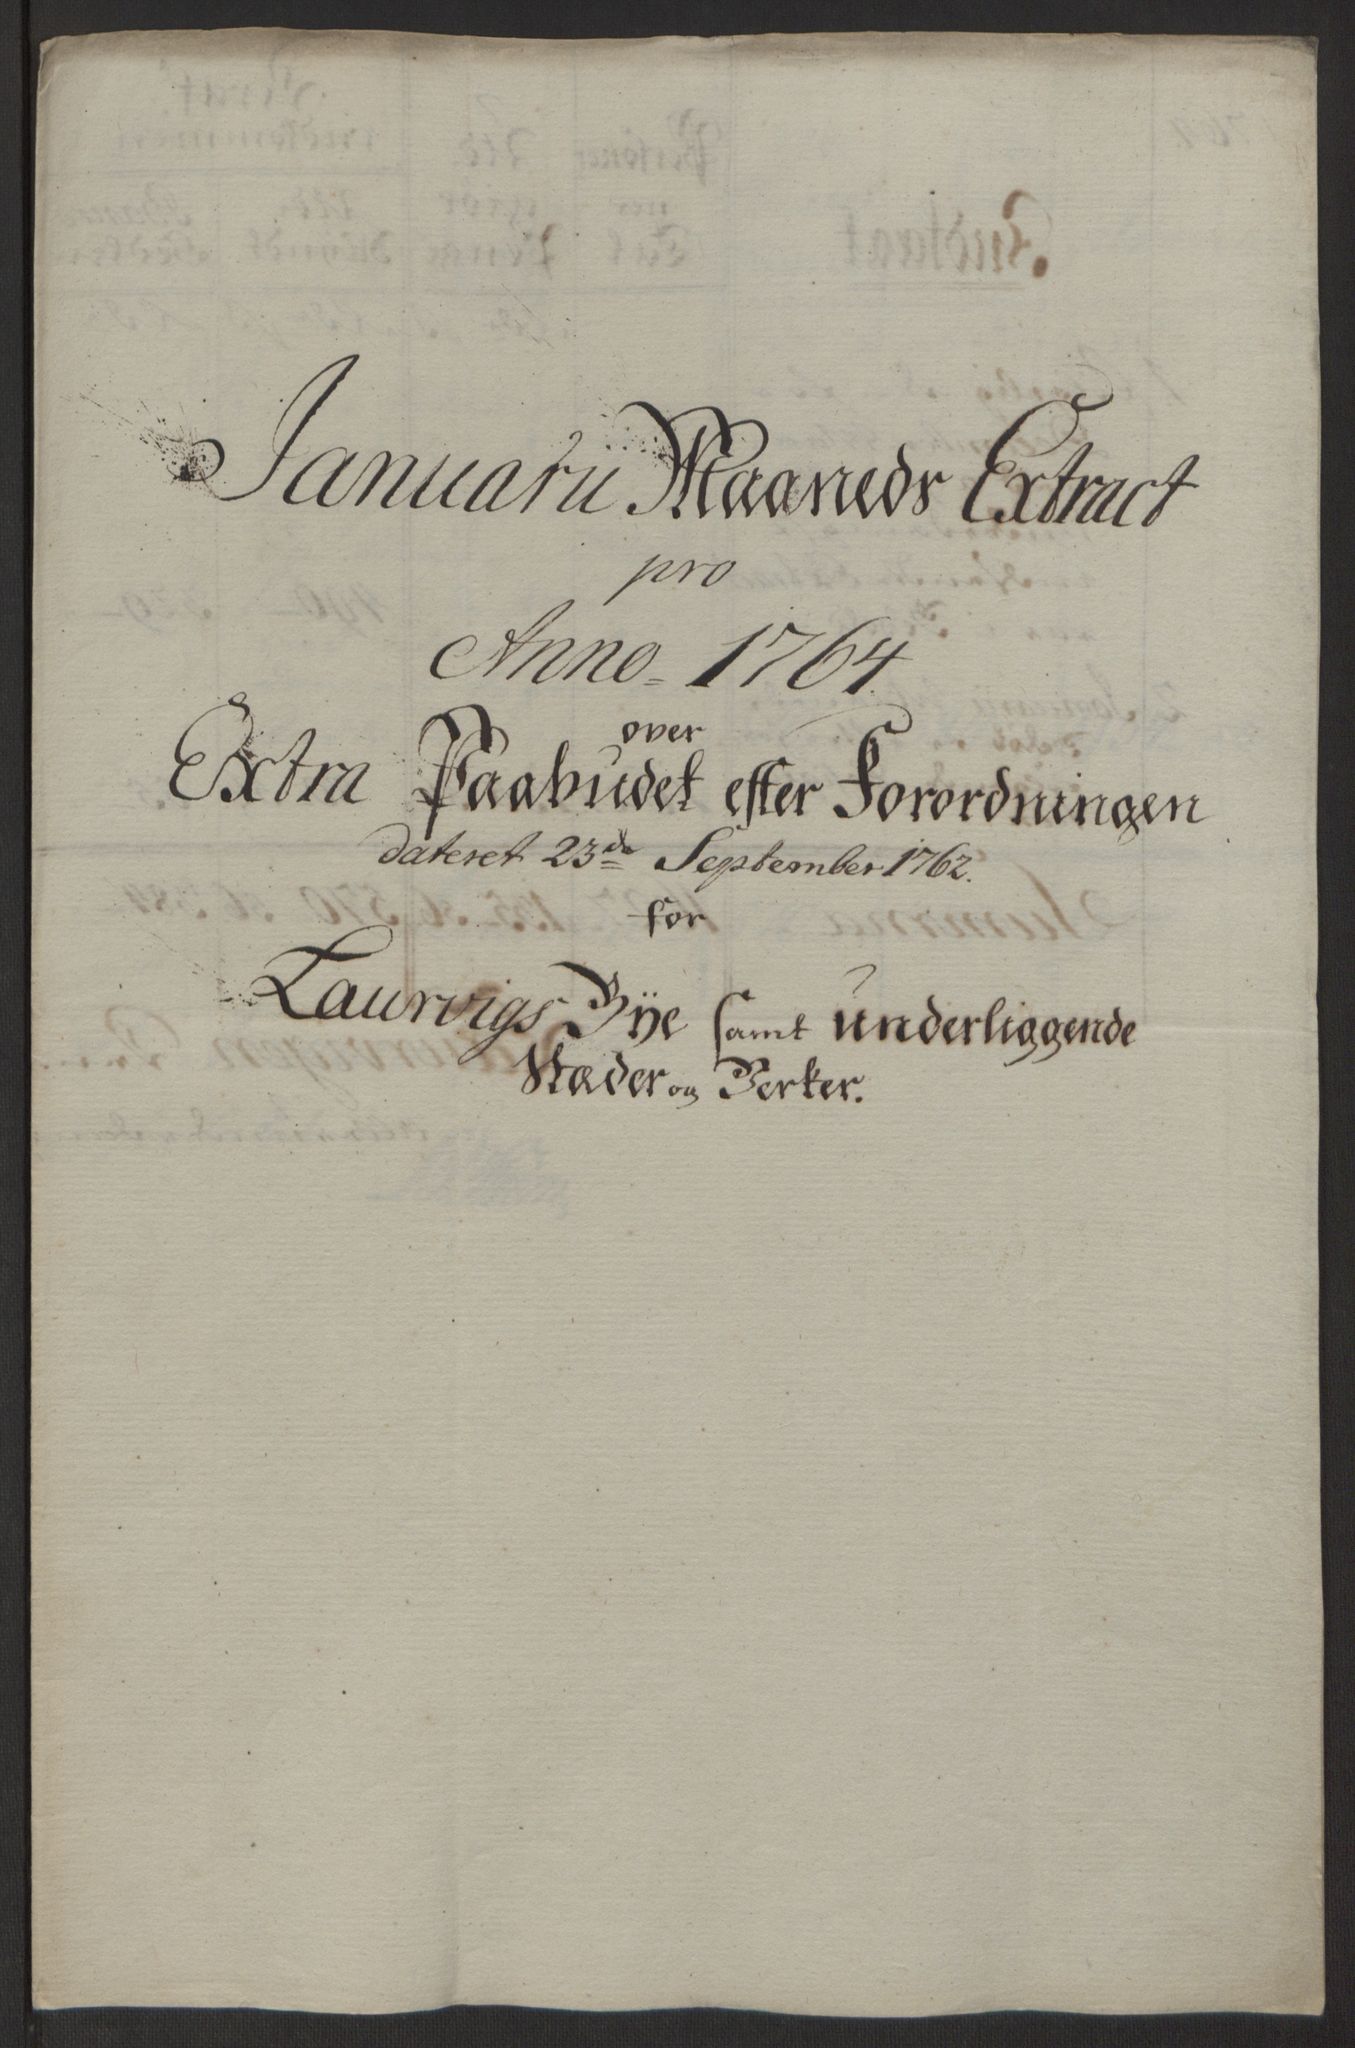 Januarii Maaneds Extract
pro
Anno 1764.
over
Extra Paabudet efter Forordningen
dateret 23de September 1762.
for
Laurvigs Bÿe samt underliggende
Stæder og Verker.